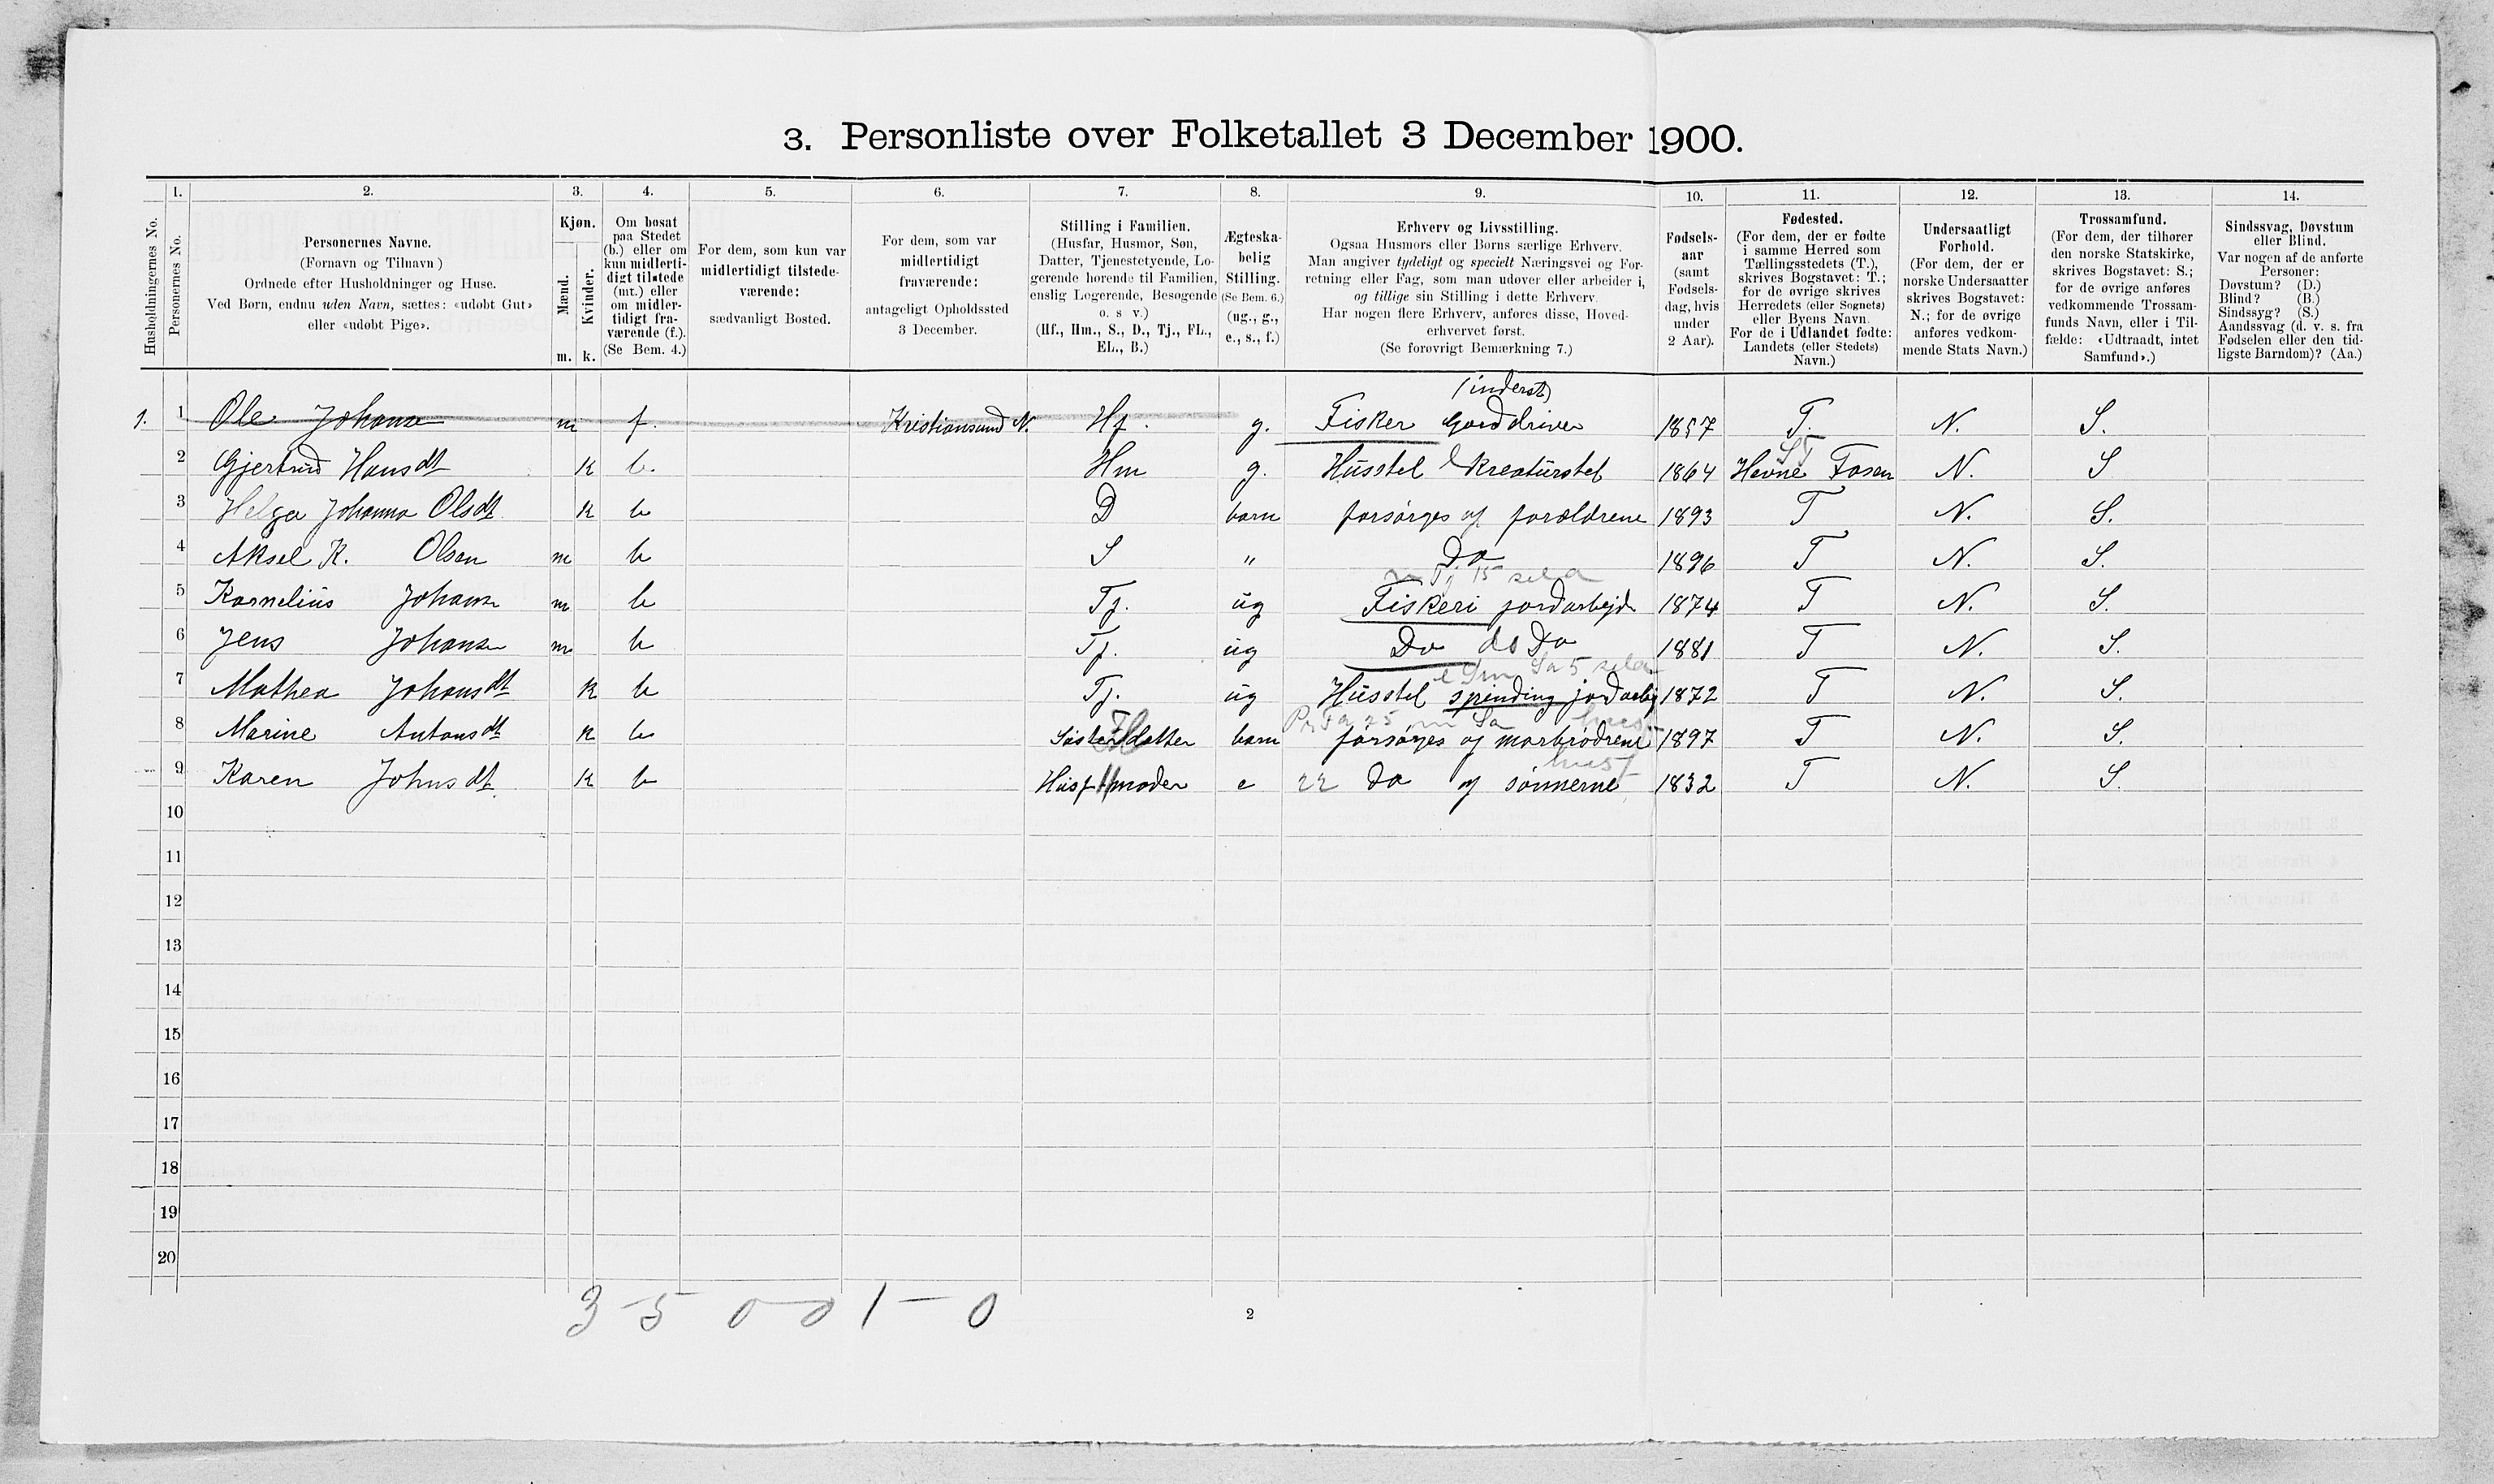 3. Personliste over Folketallet 3 December 1900.
1. 2. 3. 4. 5. 6. 7. 8. 9. 10. 11. 12. 13. 14.
Husholdningernes No.
Personernes No.
Personernes Navne.
(Fornavn og Tilnavn)
Ordnede efter Husholdninger og Huse.
Ved Børn, endnu uden Navn, sættes: «udøbt Gut»
eller «udøbt Pige».
Kjøn.
Mænd.
m.
Kvinder.
k.
Om bosat
paa Stedet
(b.) eller om
kun midlerti-
digt tilstede
(mt.) eller
om midler-
tidigt fra-
værende (f.).
(Se Bem. 4.)
For dem, som kun var
midlertidigt tilstede-
værende:
sædvanligt Bosted.
For dem, som var
midlertidigt
fraværende:
antageligt Opholdssted
3 December.
Stilling i Familien.
(Husfar, Husmor, Søn,
Datter, Tjenestetyende, Lo-
gerende hørende til Familien,
enslig Logerende, Besøgende
o. s. v.)
(Hf., Hm., S., D., Tj., FL.,
EL., B.)
Ægteska-
belig
Stilling.
(Se Bem. 6.)
(ug., g.,
e., s., f.)
Erhverv og Livsstilling.
Ogsaa Husmors eller Børns særlige Erhverv.
Man angiver tydeligt og specielt Næringsvei og For-
retning eller Fag, som man udøver eller arbeider i,
og tillige sin Stilling i dette Erhverv.
Har nogen flere Erhverv, anføres disse, Hoved-
erhvervet først.
(Se forøvrigt Bemærkning 7.)
Fødsels-
aar
(samt
Fødsels-
dag, hvis
under
2 Aar).
Fødested.
(For dem, der er fødte
i samme Herred som
Tællingsstedets (T.),
skrives Bogstavet: T.;
for de øvrige skrives
Herredets (eller Sognets)
eller Byens Navn.
For de i Udlandet fødte:
Landets (eller Stedets)
Navn.)
Undersaatligt
Forhold.
(For dem, der er
norske Undersaatter
skrives Bogstavet:
N.; for de øvrige
anføres vedkom-
mende Stats Navn.)
Trossamfund.
(For dem, der tilhører
den norske Statskirke,
skrives Bogstavet: S.;
for de øvrige anføres
vedkommende Trossam-
funds Navn, eller i Til-
fælde: «Udtraadt, intet
Samfund».)
Sindssvag, Døvstum
eller Blind.
Var nogen af de anførte
Personer:
Døvstum? (D.)
Blind? (B.)
Sindssyg? (S.)
Aandssvag (d. v. s. fra
Fødselen eller den tid-
ligste Barndom)? (Aa.)
(inderst)
1. 1 Ole Johansen m f. Kristiansund N. Hf. g. Fisker Gaarddriver 1857 T. N. S.
2 Gjertrud Hansdt k b. Hm g. Husstel Kreaturstel 1864 Hevne Fosen N. S
3 Helga Johanna Olsdt k b D barn forsørges af forældrene 1893 T N. S.
4 Aksel K. Olsen m b S " Do 1896 T N. S.
5 Kornelius Johansen m b Tj. ug Fiskeri jordarbejde 1874 T N. S.
6 Jens Johansen m b Tj. ug Do do Do 1881 T N. S.
7 Mathea Johansdt k b Tj. ug Husstel spinding jordarbej 1872 T N. S.
8 Marine Antonsdt k b Søsterdatter barn forsørges af morbrødrene 1897 T N. S.
9 Karen Johnsdt k b Husf moder e 22 Do af sønnerne 1832 T N. S.
10
11
12
13
14
15
16
17
18
19
20
3 - 5 0 - 0 1 - 0
2